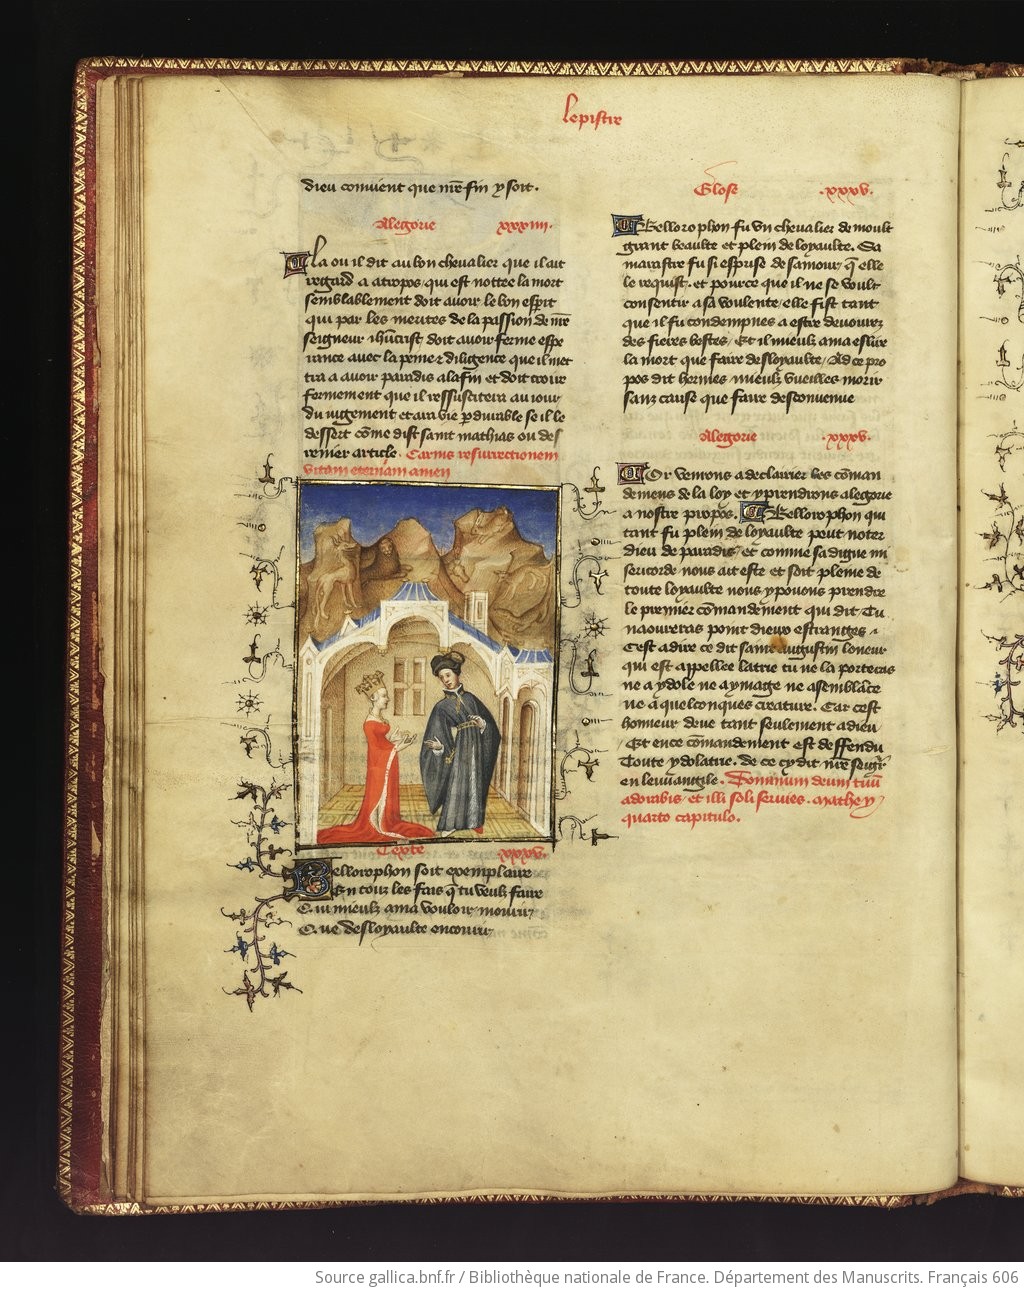 Lepistre
dieu convient que nr̃e fin y soit.
Alegorie .xxxiiii.
La ou il dit au bon chevalier que il ait
regard a atropos qui est nottee la mort
semblablement doit avoir le bon esp̃rit
qui par les merites de la passion de nr̃e
seigneur ih̃ucrist doit avoir ferme espe
rance avec la peine & diligence que il met
tra a avoir paradis a la fin et doit croire
fermement que il ressuscitera au jour
du jugement et aura vie p̱durable se il le
dessert cõme dist saint mathias ou der
renier article. Carnis resurrectionem
vitam eternam amen
Texte .xxxv.
Bellorophon soit exemplaire
En touz les fais q̃ tu veulz faire
Qui mieulz ama vouloir mourir
Que desloyaulte encourir
Glose .xxxv.
Bellorophon fu un chevalier de moult
grant beaulte et plein de loyaulte. Sa
marastre fu si esprise de s'amour q̃ elle
le requist. et pource que il ne se voult
consentir a sa voulente elle fist tant
que il fu condempnes a estre devourez
des fieres bestes. Et il mieulz ama eslire
la mort que faire desloyaulte. Ad ce pro
pos dit hermes mieulz vueilles morir
sanz cause que faire desconvenue
Alegorie .xxxv.
Or venrons a declairier les cõman
demens de la loy et y prendrons alegorie
a nostre propos. Bellorophon qui
tant fu plein de loyaulte peut noter
dieu de paradis et comme sa digne mi
sericorde nous ait este et soit pleine de
toute loyaulte nous y povons prendre
le premier cõmandement qui dit Tu
naoureras point dieux estranges .
Cest a dire ce dit saint augustin loneur
qui est appellee latrie tu ne la porteras
ne a ydole ne a ymage ne a semblãce
ne a quelconques creature. Car cest
honneur deue tant seulement a dieu
Et en ce cõmandement est deffendu
Toute ydolatrie. de ce cy dit nr̃e seigr̃
en leuvangile. Dominum deum tuũ
adorabis et illi soli servies. Mathey
quarto capitulo.
Source gallica.bnf.fr / Bibliothèque nationale de France. Département des Manuscrits. Français 606